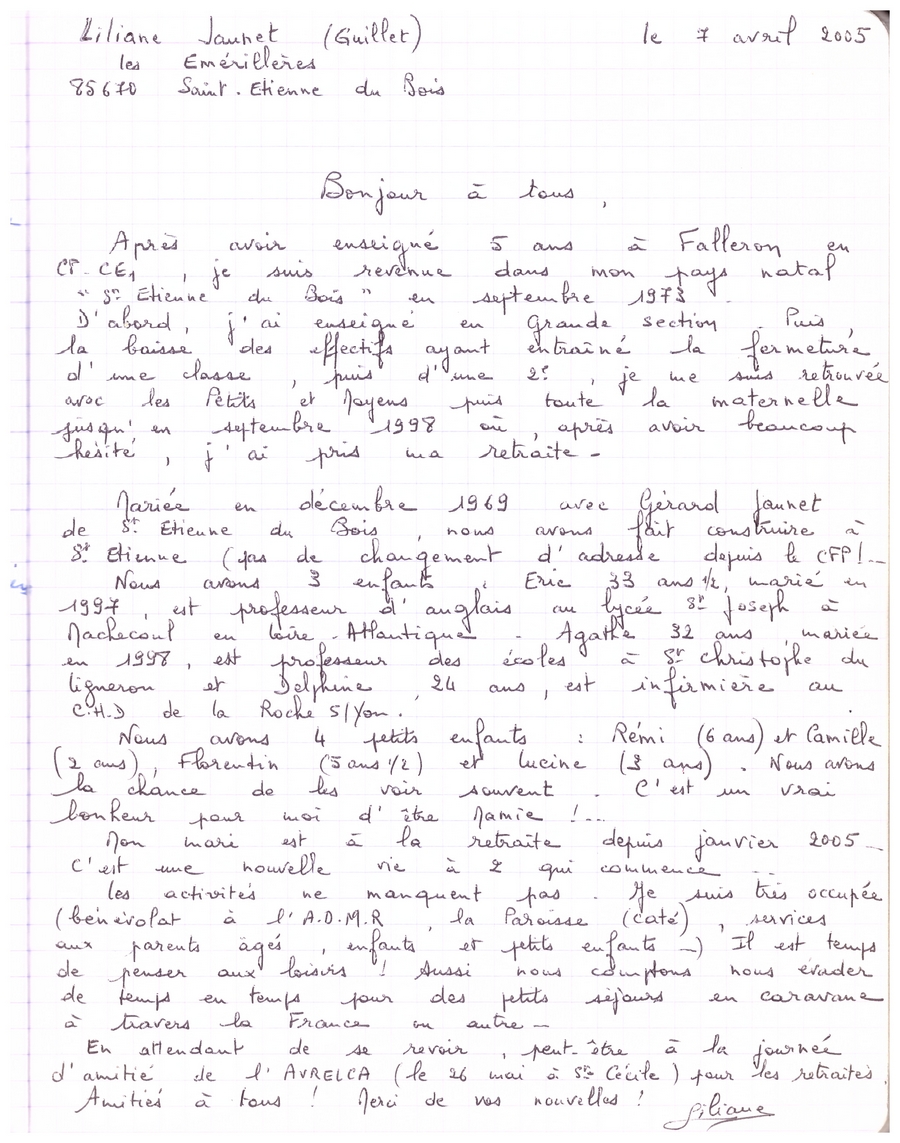 Liliane Jaunet (Guillet) le 7 avril 2005
les Emérillères
85670 Saint.Etienne du Bois
Bonjour à tous,
Après avoir enseigné 5 ans à Falleron en
CP-CE1, je suis revenue dans mon pays natal
"St Etienne du Bois" en septembre 1973.
D'abord, j'ai enseigné en Grande section. Puis,
la baisse des effectifs ayant entraîné la fermeture
d'une classe, puis d'une 2e, je me suis retrouvée
avec les Petits et Moyens puis toute la maternelle
jusqu'en septembre 1998 où, après avoir beaucoup
hésité, j'ai pris ma retraite -
Mariée en décembre 1969 avec Gérard Jaunet
de St Etienne du Bois, nous avons fait construire à
St Etienne (pas de changement d'adresse depuis le CFP!..
Nous avons 3 enfants : Eric 33 ans 1/2, marié en
1997, est professeur d'anglais au lycée St Joseph à
Machecoul en Loire-Atlantique - Agathe 32 ans, mariée
en 1998, est professeur des écoles à St Christophe du
Ligneron et Delphine, 24 ans, est infirmière au
C.H.D de la Roche S/Yon.
Nous avons 4 petits enfants : Rémi (6 ans) et Camille
(2 ans), Florentin (5 ans 1/2) et Lucine (3 ans). Nous avons
la chance de les voir souvent. C'est un vrai
bonheur pour moi d'être Mamie !...
Mon mari est à la retraite depuis janvier 2005 -
C'est une nouvelle vie à 2 qui commence ...
Les activités ne manquent pas. Je suis très occupée
(bénévolat à l'A.D.M.R, la Paroisse (caté), services
aux parents âgés, enfants et petits enfants -) Il est temps
de penser aux loisirs ! Aussi nous comptons nous évader
de temps en temps pour des petits séjours en caravane
à travers la France ou autre -
En attendant de se revoir, peut-être à la journée
d'amitié de l'AVRELCA (le 26 mai à Ste Cécile) pour les retraités,
Amitiés à tous ! Merci de vos nouvelles !
Liliane